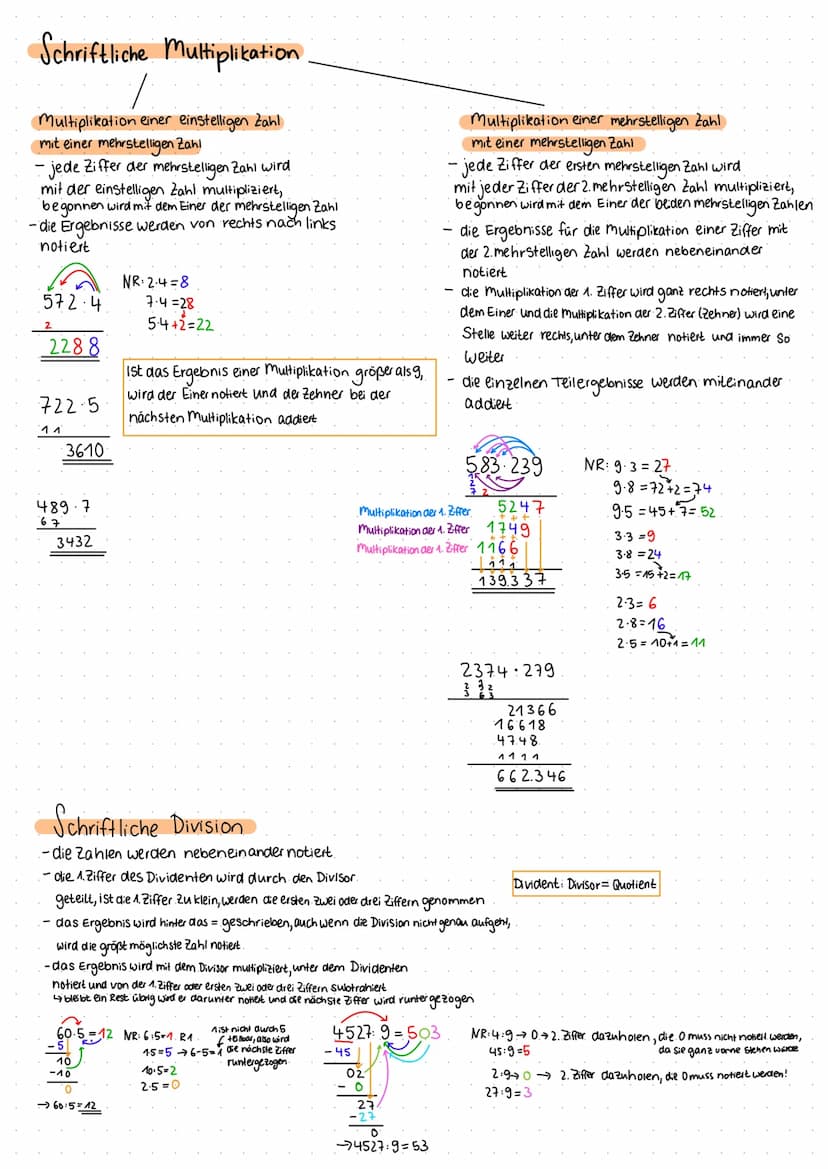 Schriftliche Multiplikation
Multiplikation einer einstelligen Zahl
mit einer mehrstelligen Zahl
- jede Ziffer der mehrstelligen Zahl wird
mit der einstelligen Zahl multipliziert,
begonnen wird mit dem Einer der mehrstelligen Zahl
- die Ergebnisse werden von rechts nach links
notiert
572·4
2
2288
NR: 2·4=8
7·4=28
5·4+2=22
Ist das Ergebnis einer Multiplikation größer als 9,
wird der Einer notiert und der Zehner bei der
nächsten Multiplikation addiert
722·5
11
3610
489·7
67
3432
Multiplikation einer mehrstelligen Zahl
mit einer mehrstelligen Zahl
- jede Ziffer der ersten mehrstelligen Zahl wird
mit jeder Ziffer der 2. mehrstelligen Zahl multipliziert,
begonnen wird mit dem Einer der beiden mehrstelligen Zahlen
- die Ergebnisse für die Multiplikation einer Ziffer mit
der 2. mehrstelligen Zahl werden nebeneinander
notiert
- die Multiplikation der 1. Ziffer wird ganz rechts notiert, unter
dem Einer und die Multiplikation der 2. Ziffer (Zehner) wird eine
Stelle weiter rechts, unter dem Zehner notiert und immer so
weiter
- die einzelnen Teilergebnisse werden miteinander
addiert
583·239
1
2
7 2
Multiplikation der 1. Ziffer 5247
Multiplikation der 1. Ziffer 1749
Multiplikation der 1. Ziffer 1166
111
139.337
NR: 9·3=27
9·8=72+2=74
9·5=45+7=52
3·3=9
3·8=24
3·5=15+2=17
2·3=6
2·8=16
2·5=10+1=11
2374·279
21366
16618
4748
1111
662.346
Schriftliche Division
- die Zahlen werden nebeneinander notiert
- die 1. Ziffer des Dividenten wird durch den Divisor
geteilt, ist die 1. Ziffer zu klein, werden die ersten zwei oder drei Ziffern genommen
Divident: Divisor= Quotient
- das Ergebnis wird hinter das = geschrieben, auch wenn die Division nicht genau aufgeht,
wird die größt möglichste Zahl notiert
- das Ergebnis wird mit dem Divisor multipliziert, unter dem Dividenten
notiert und von der 1. Ziffer oder ersten zwei oder drei Ziffern subtrahiert
↳ bleibt ein Rest übrig wird er darunter notiert und die nächste Ziffer wird runtergezogen
60:5=12
-5
10
-10
0
→ 60:5=12
NR: 6:5=1 R1
1·5=5 → 6-5=1
10:5=2
2·5=0
1 ist nicht durch 5
teilbar, also wird
die nächste Ziffer
runtergezogen
4527:9=503
-45
02
-0
27
-27
0
→4527:9=53
NR: 4:9 → 0 → 2. Ziffer dazuholen, die 0 muss nicht notiert werden,
da sie ganz vorne stehen würde
45:9=5
2:9→0 → 2. Ziffer dazuholen, die 0 muss notiert werden!
27:9=3